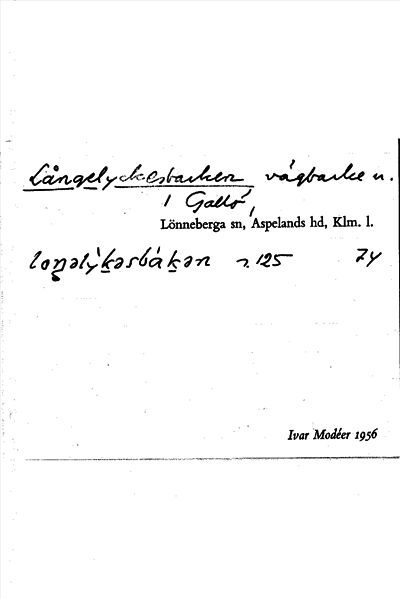 Långelyckesbacken vägbacke n.
i Gallö,
Lönneberga sn, Aspelands hd, Klm. l.
loŋəly̆k̲əsbák̲ən n. 125 74
Ivar Modéer 1956